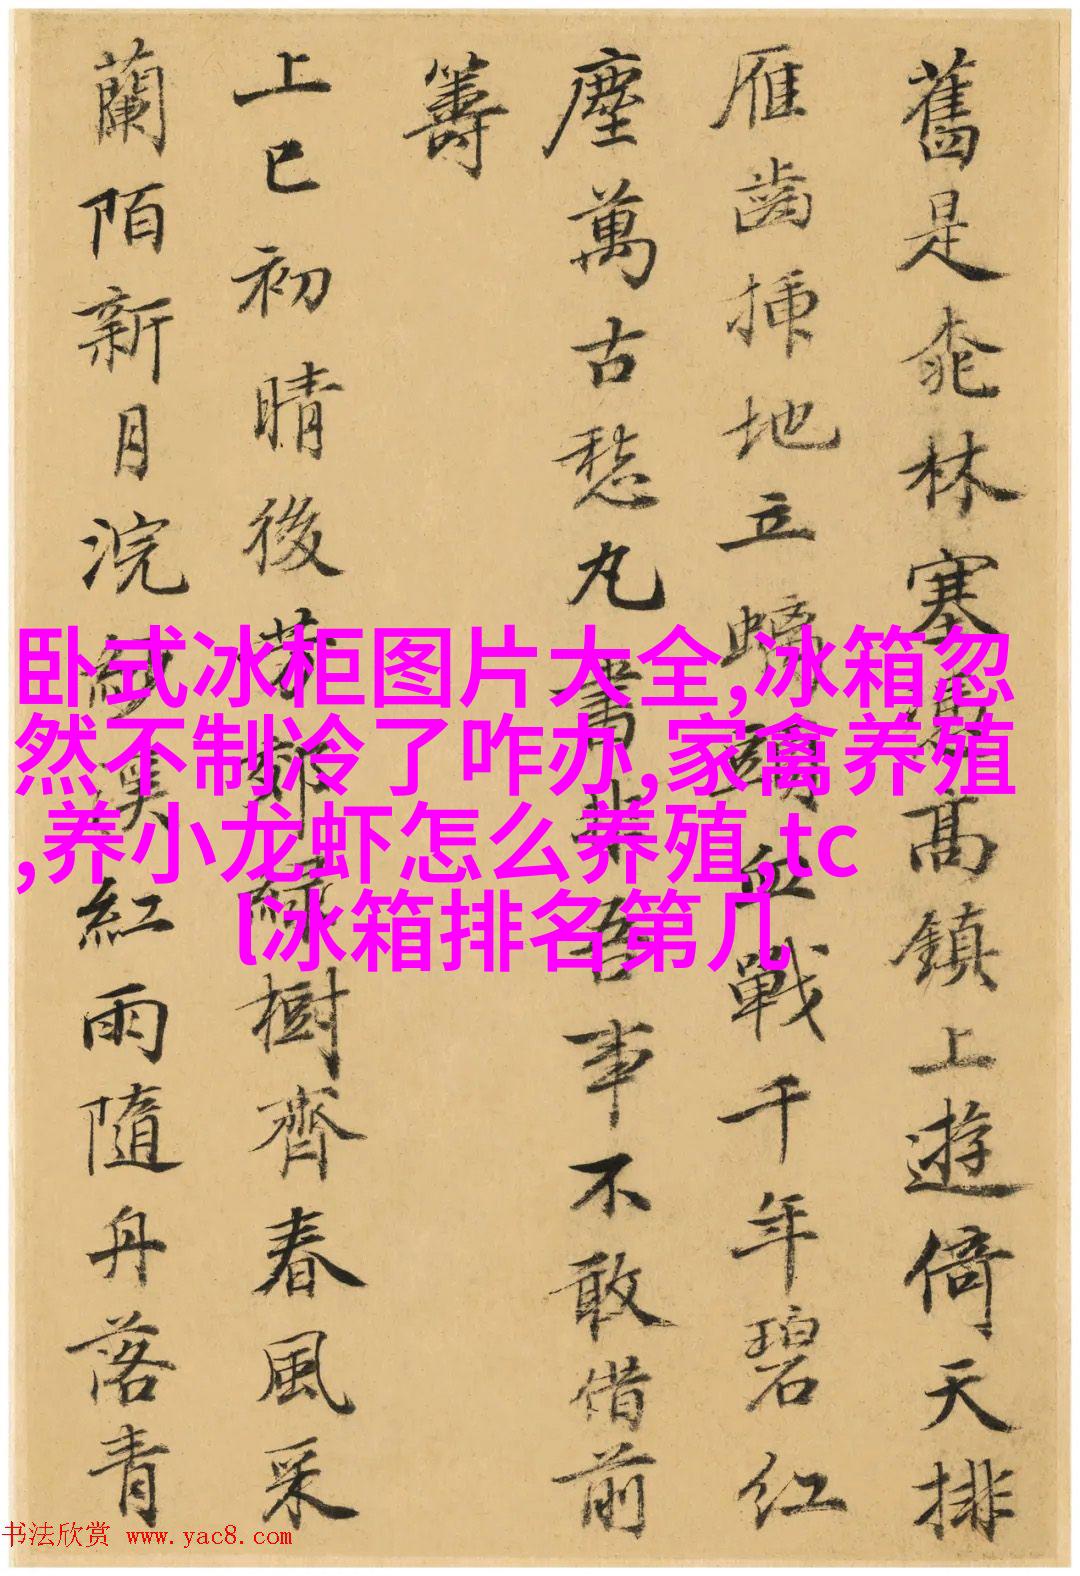 舊是林塞高鎮上遊倚天排
雁齒插地立螭頭血戰千年碧紅
塵萬古愁丸書非吾事不敢借前
籌
上巳初晴後芳郊綠樹齊春風采
蘭陌新月浣紗溪紅雨隨舟落青
卧式冰柜图片大全,冰箱忽
然不制冷了咋办,家禽养殖
,养小龙虾怎么养殖,tc
l冰箱排名第几
书法欣赏 www.yac8.com